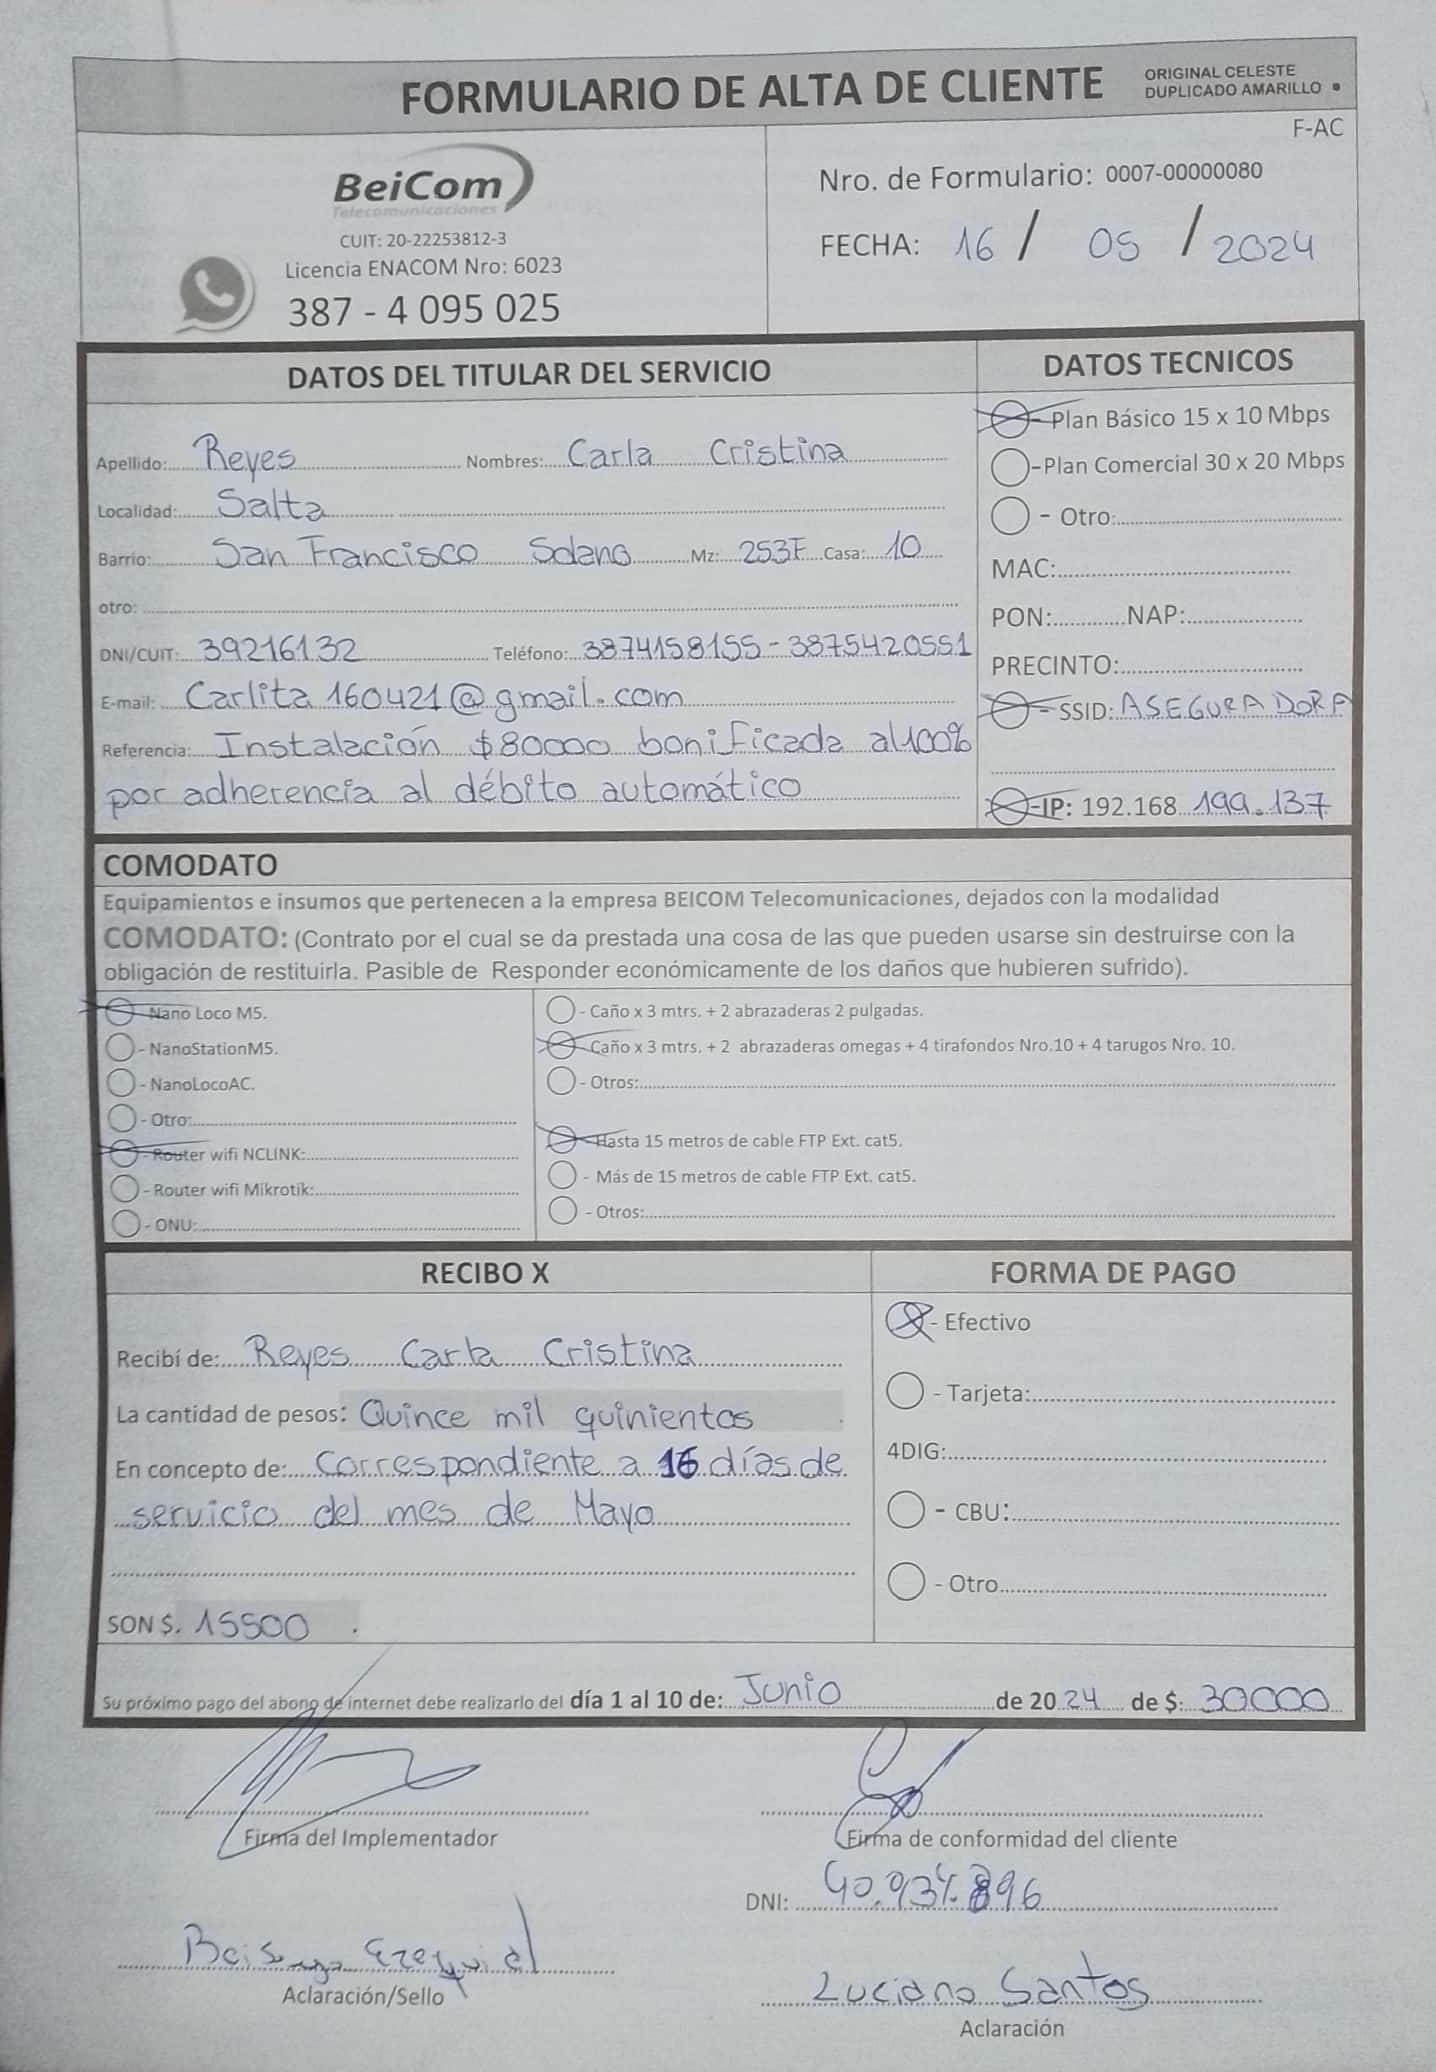 FORMULARIO DE ALTA DE CLIENTE
ORIGINAL CELESTE
DUPLICADO AMARILLO
F-AC
BeiCom
Telecomunicaciones
CUIT: 20-22253812-3
Licencia ENACOM Nro: 6023
387 - 4 095 025
Nro. de Formulario: 0007-00000080
FECHA: 16 / 05 / 2024
DATOS DEL TITULAR DEL SERVICIO
Apellido: Reyes Nombres: Carla Cristina
Localidad: Salta
Barrio: San Francisco Solano Mz: 253F Casa: 10
otro:
DNI/CUIT: 39216132 Teléfono: 3874158155 - 3875420551
E-mail: Carlita160421@gmail.com
Referencia: Instalación $80000 bonificada al 100%
por adherencia al débito automático
DATOS TECNICOS
- Plan Básico 15 x 10 Mbps
-Plan Comercial 30 x 20 Mbps
- Otro:
MAC:
PON: NAP:
PRECINTO:
- SSID: ASEGURADORA
-IP: 192.168 199.137
COMODATO
Equipamientos e insumos que pertenecen a la empresa BEICOM Telecomunicaciones, dejados con la modalidad
COMODATO: (Contrato por el cual se da prestada una cosa de las que pueden usarse sin destruirse con la
obligación de restituirla. Pasible de Responder económicamente de los daños que hubieren sufrido).
- Nano Loco M5.
- NanoStationM5.
- NanoLocoAC.
- Otro:
- Router wifi NCLINK:
- Router wifi Mikrotik:
- ONU:
- Caño x 3 mtrs. + 2 abrazaderas 2 pulgadas.
- Caño x 3 mtrs. + 2 abrazaderas omegas + 4 tirafondos Nro.10 + 4 tarugos Nro. 10.
- Otros:
- Hasta 15 metros de cable FTP Ext. cat5.
- Más de 15 metros de cable FTP Ext. cat5.
- Otros:
RECIBO X
Recibí de: Reyes Carla Cristina
La cantidad de pesos: Quince mil quinientos
En concepto de: Correspondiente a 16 días de
servicio del mes de Mayo
SON $. 15500
FORMA DE PAGO
- Efectivo
- Tarjeta:
4DIG:
- CBU:
- Otro
Su próximo pago del abono de internet debe realizarlo del día 1 al 10 de: Junio de 2024 de $: 30000
Firma del Implementador
Firma de conformidad del cliente
DNI: 40.937.896
Ezequiel
Aclaración/Sello
Luciano Santos
Aclaración